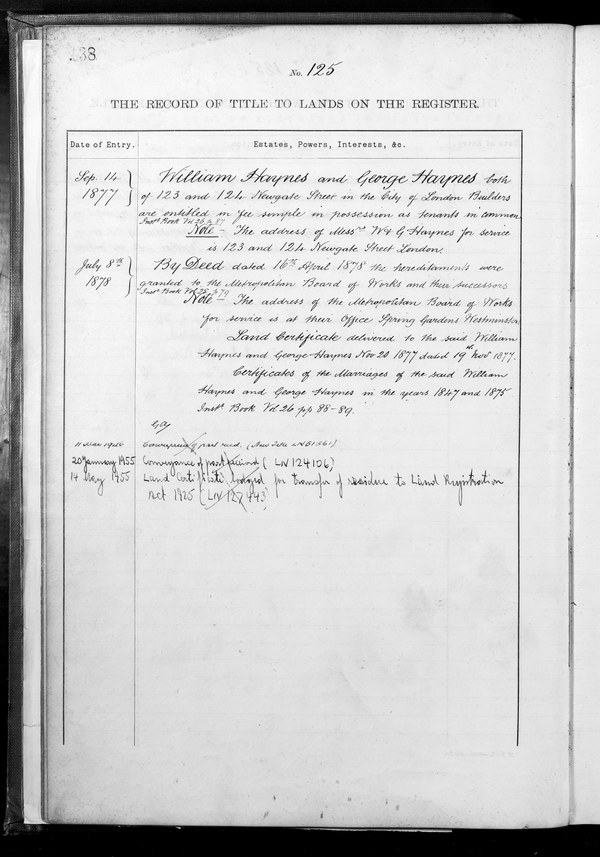 238
No. 125
THE RECORD OF TITLE TO LANDS ON THE REGISTER.
Date of Entry. Estates, Powers, Interests, &c.
Sep. 14 William Haynes and George Haynes both
1877 of 123 and 124 Newgate Street in the City of London Builders
are entitled in fee simple in possession as tenants in common
Instr Book Vol 26 p 87
Note – The address of Messrs W & G Haynes for service
is 123 and 124 Newgate Street London.
July 8th By Deed dated 16th April 1878 the hereditaments were
1878 granted to the Metropolitan Board of Works and their successors
Instr Book Vol 28 p 79
Note The address of the Metropolitan Board of Works
for service is at their Office Spring Gardens Westminster
Land Certificate delivered to the said William
Haynes and George Haynes Nov 20 1877 dated 19th Novr 1877.
Certificates of the Marriages of the said William
Haynes and George Haynes in the years 1847 and 1875
Instr Book Vol 26 pp 88-89.
11 Mar Conveyance of part recd. (New Title LN51561)
20 January 1955 Conveyance of part received (LN 124106)
14 May 1955 Land Certificate lodged for transfer of residue to Land Registration
Act 1925 (LN 127443)